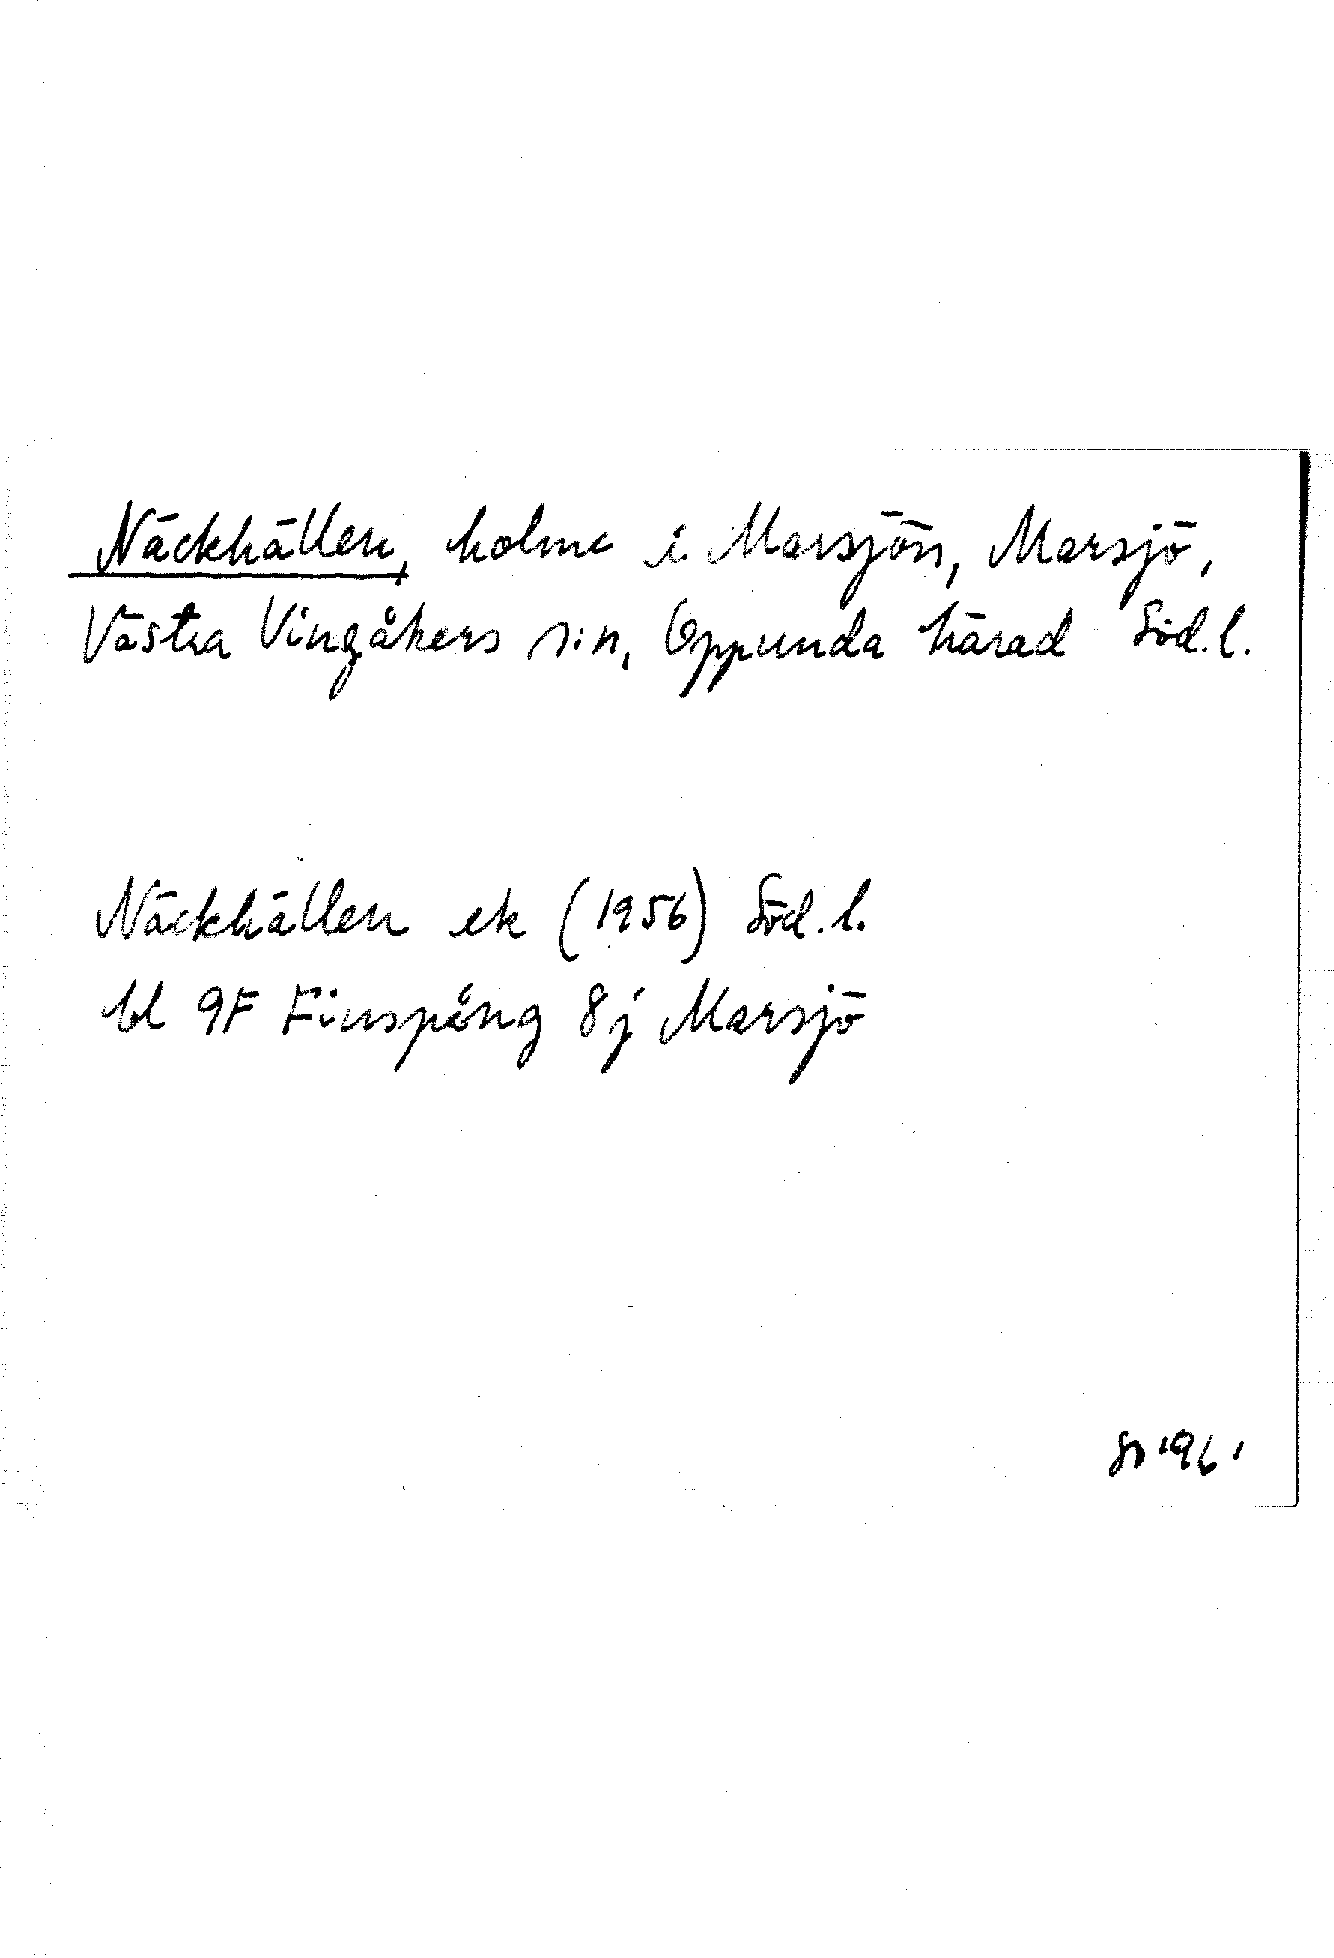 Näckhällen, holme i Marsjön, Marsjö,
Västra Vingåkers s:n, Oppunda härad Söd.l.
Näckhällen ek (1956) Söd.l.
bl 9F Finspång 8j Marsjö
1961